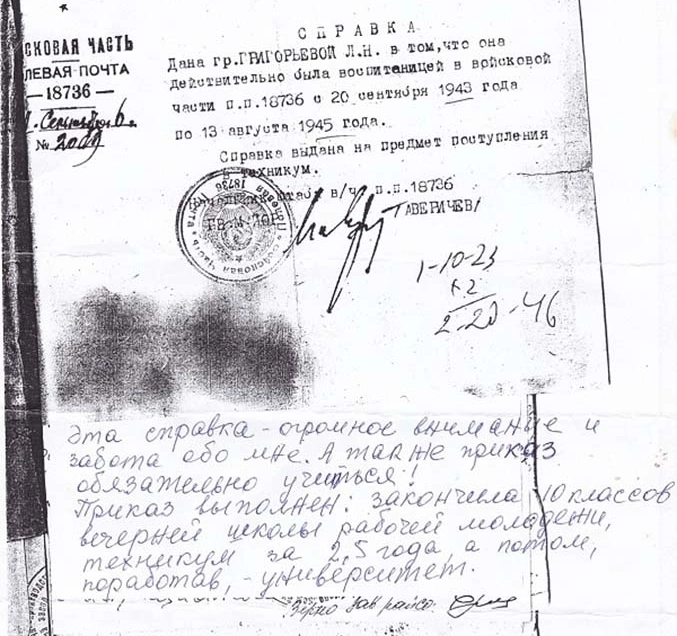 СПРАВКА
СКОВАЯ ЧАСТЬ
ЛЕВАЯ ПОЧТА
— 18736 —
Дана гр.ГРИГОРЬЕВОЙ Л.Н. в том,что она
действительно была воспитаницей в войсковой
части п.п.18736 с 20 сентября 1943 года
по 13 августа 1945 года.
Справка выдана на предмет поступления
в техникум.
штаба в/ч п.п.18736
ТАВЕРИЧЕВ/
Полевая почта 18736 Войсковая часть
1-10-23
2-20-46
Эта справка - огромное внимание и
забота обо мне. А также приказ
обязательно учиться!
Приказ выполнен: закончила 10 классов
вечерней школы рабочей молодежи,
техникум за 2,5 года, а потом,
поработав, - университет.
Верно зав райсо